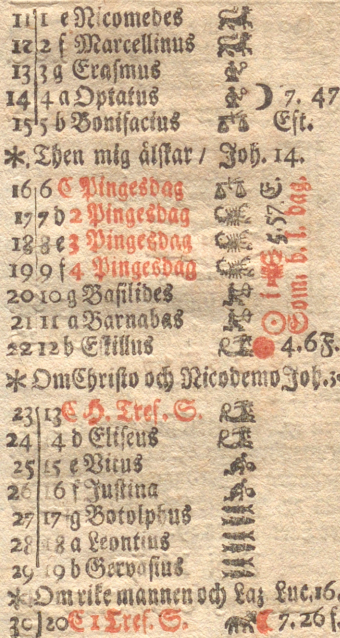 11 1 e Nicomedes
12 2 f Marcellinus
13 3 g Erasmus
14 4 a Optatus ☽ 7. 47
15 5 b Bonifacius Eft.
* Then mig älskar / Joh. 14.
16 6 C Pingesdag
17 7 d 2 Pingesdag
18 8 e 3 Pingesdag
19 9 f 4 Pingesdag
20 10 g Basilides
21 11 a Barnabas
22 12 b Eskillus 4. 6 F.
☉ i 5. 57 E.
Som. b. l. dag.
* Om Christo och Nicodemo Joh. 3.
23 13 C H. Tref. S.
24 14 d Eliseus
25 15 e Vitus
26 16 f Justina
27 17 g Botolphus
28 18 a Leontius
29 19 b Gervasius
* Om rike mannen och Laz. Luc. 16.
30 20 C 1 Tref. S. ☾ 7. 26 f.